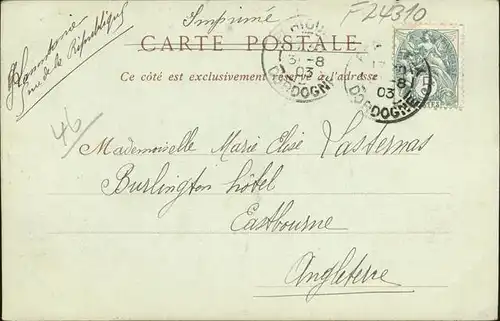 Imprimé
F24310
rue de la République
CARTE POSTALE
Ce côté est exclusivement réservé à l'adresse
31-8
03
DORDOGNE
-8
03
DORDOGNE
46
Mademoiselle Marie Elise Lasternas
Burlington hôtel
Eastbourne
Angleterre